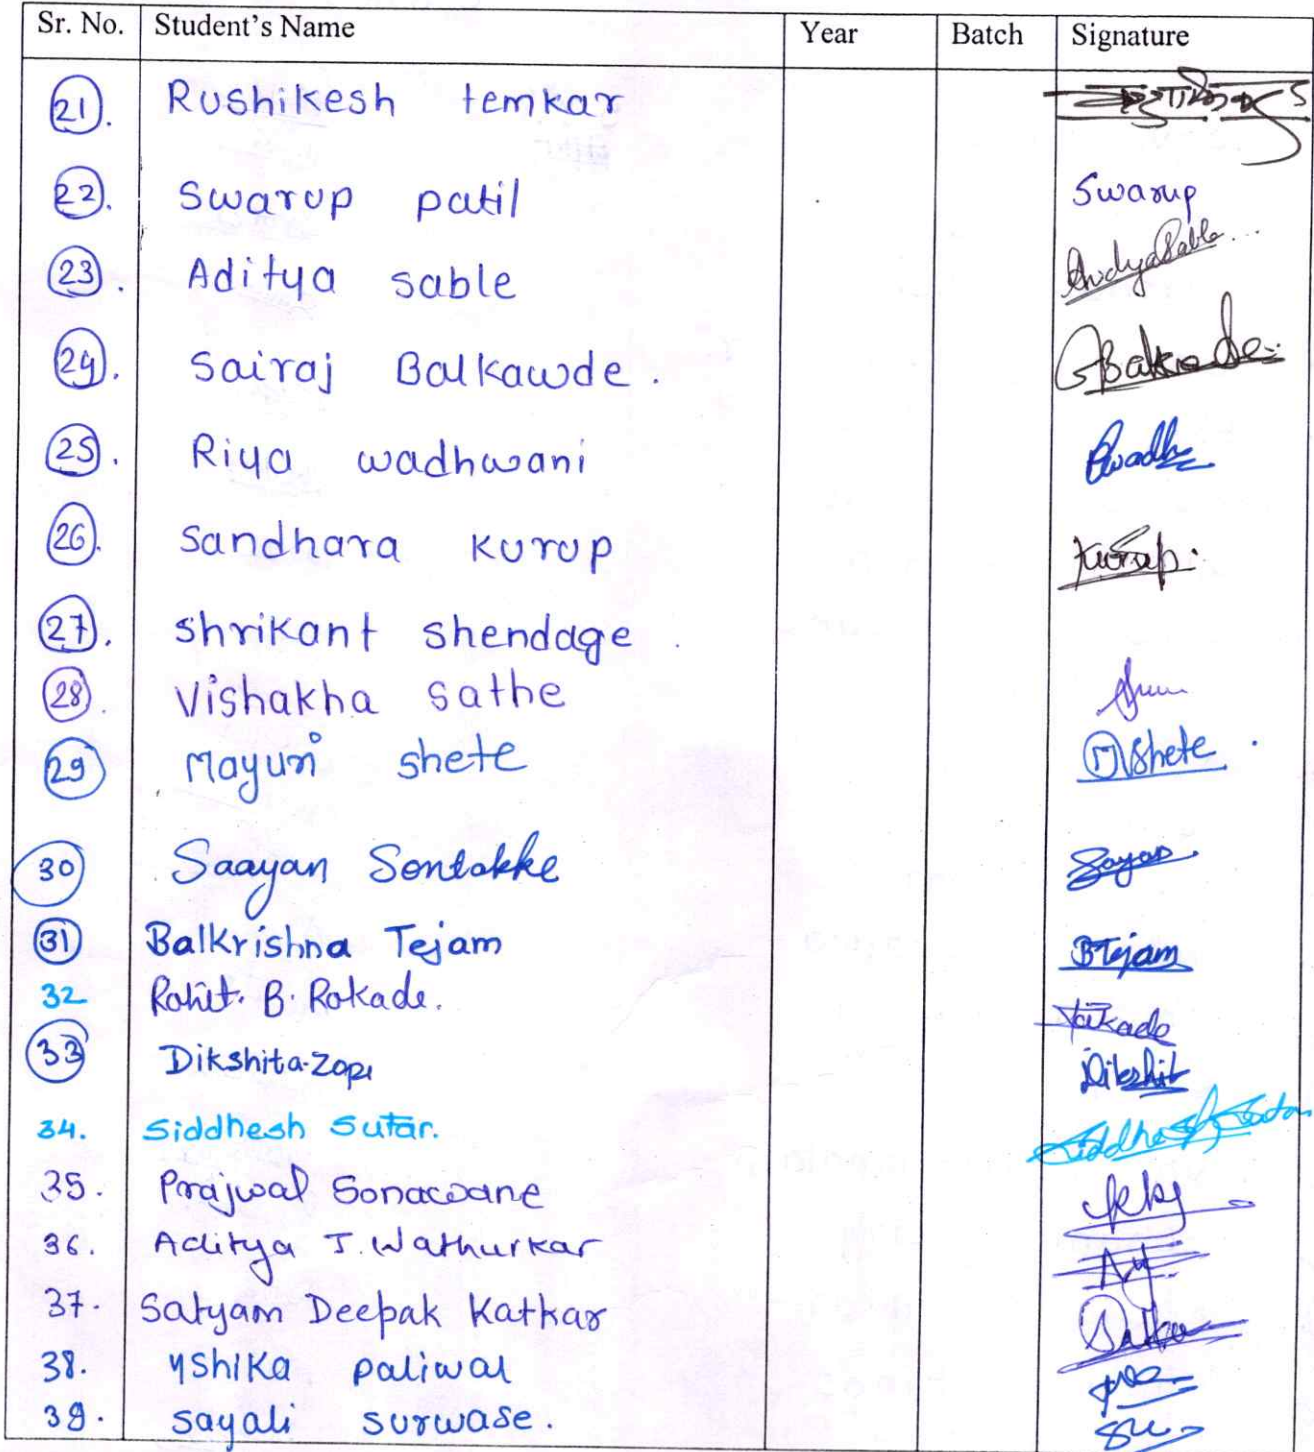 Sr. No. Student's Name Year Batch Signature
21. Rushikesh temkar
22. Swarup patil Swarup
23. Aditya sable
24. Sairaj Balkawde.
25. Riya wadhwani
26. Sandhara Kurup Kurup.
27. shrikant shendage.
28. Vishakha Sathe
29 Mayuri shete M Shete
30 Saayan Sontakke
31 Balkrishna Tejam BTejam
32 Rohit. B. Rokade.
33 Dikshita Zope
34. Siddhesh Sutar. Siddhesh Sutar
35. Prajwal Sonawane
36. Aditya J. Wathurkar
37. Satyam Deepak Katkar
38. Yshika paliwal
39. sayali surwase.